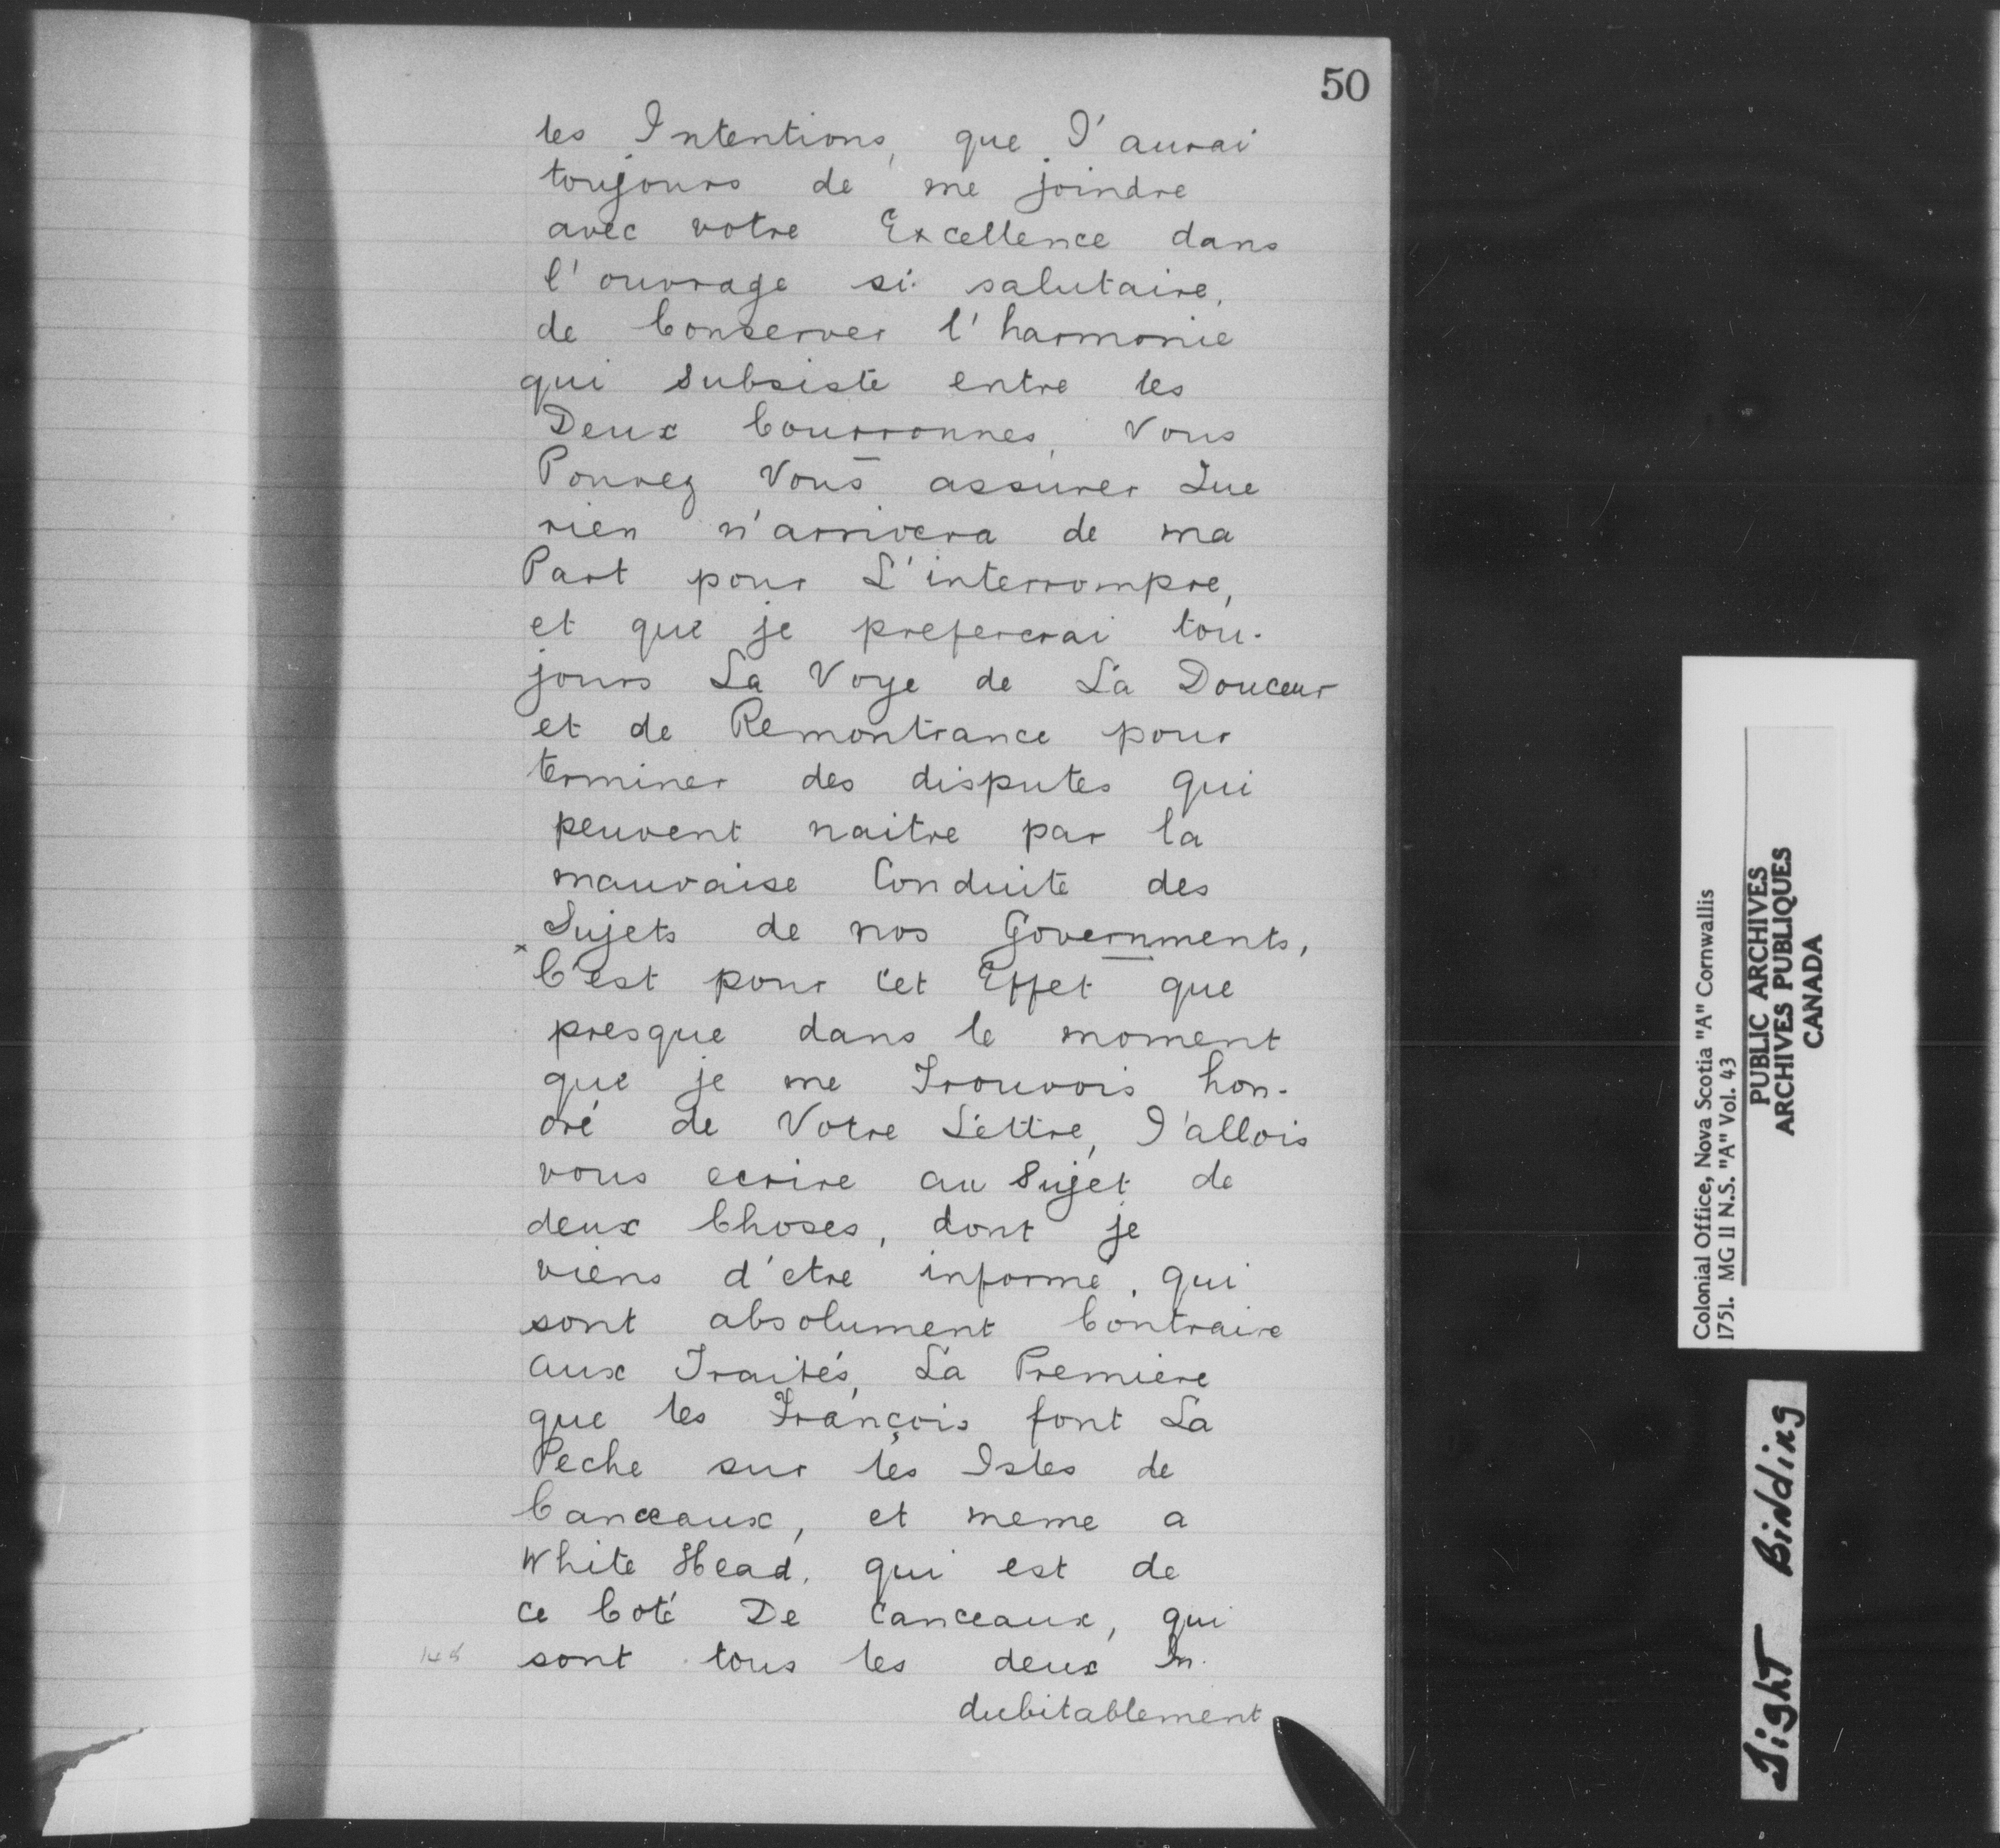 50
les Intentions, que J'aurai
toujours de me joindre
avec votre Excellence dans
l'ouvrage si salutaire,
de Conserver l'harmonie
qui Subsiste entre les
Deux Courronnes, Vous
Pouvez Vous assurer Que
rien n'arrivera de ma
Part pour L'interrompre,
et que je prefererai tou-
jours La Voye de La Douceur
et de Remontrance pour
terminer des disputes qui
peuvent naitre par la
mauvaise Conduite des
Sujets de nos Governments,
x C'est pour Cet Effet que
presque dans le moment
que je me Trouvois hon-
oré de Votre Lettre, J'allois
vous ecrire au Sujet de
deux Choses, dont je
viens d'etre informé, qui
sont absolument Contraire
aux Traités, La Premiere
que les François font La
Peche sur les Isles de
Canceaux, et meme a
White Head, qui est de
ce Coté De Canceaux, qui
sont tous les deux In-
dubitablement
Colonial Office, Nova Scotia "A" Cornwallis
1751. MG 11 N.S. "A" Vol. 43
PUBLIC ARCHIVES
ARCHIVES PUBLIQUES
CANADA
Tight Binding